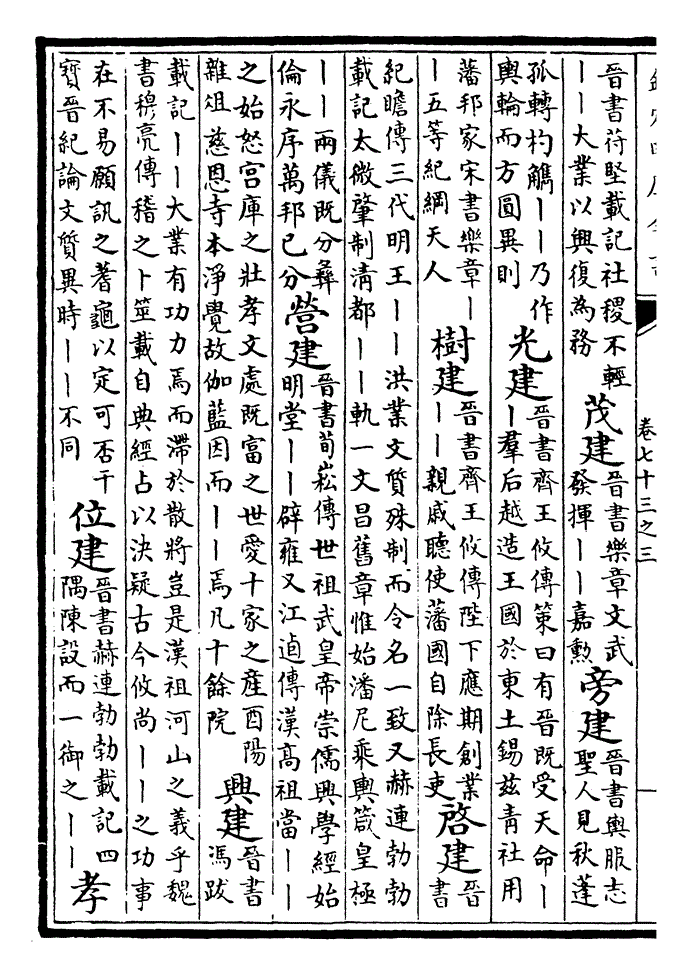 卷七十三之三
晉書苻堅載記社稷不輕
丨丨大業以興復為務
茂建
晉書樂章文武
發揮丨丨嘉勲
旁建
晉書輿服志
聖人見秋蓬
孤轉杓觿丨丨乃作
輿輪而方圓異則
光建
晉書齊王攸傳策曰有晉既受天命丨
丨羣后越造王國於東土錫兹青社用
藩邦家宋書樂章丨
丨五等紀綱天人
樹建
晉書齊王攸傳陛下應期創業
丨丨親戚聽使藩國自除長吏
啓建
晉
書
紀瞻傳三代明王丨丨洪業文質殊制而令名一致又赫連勃勃
載記太微肇制清都丨丨軌一文昌舊章惟始潘尼乘輿箴皇極
丨丨兩儀既分彝
倫永序萬邦已分
營建
晉書荀崧傳世祖武皇帝崇儒興學經始
明堂丨丨辟雍又江逌傳漢高祖當丨丨
之始怒宫庫之壯孝文處既富之世愛十家之産酉陽
雜俎慈恩寺本淨覺故伽藍因而丨丨焉凡十餘院
興建
晉書
馮跋
載記丨丨大業有功力焉而滯於散將豈是漢祖河山之義乎魏
書穆亮傳稽之卜筮載自典經占以決疑古今攸尚丨丨之功事
在不易願訊之蓍龜以定可否干
寶晉紀論文質異時丨丨不同
位建
晉書赫連勃勃載記四
隅陳設而一御之丨丨
孝